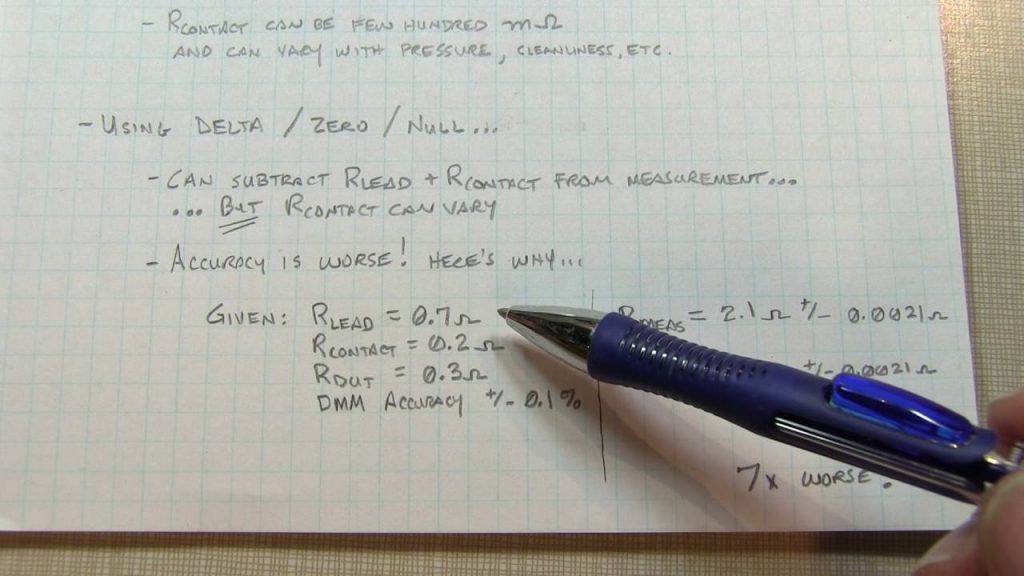 - RCONTACT CAN BE FEW HUNDRED mΩ
AND CAN VARY WITH PRESSURE, CLEANLINESS, ETC.
- USING DELTA / ZERO / NULL...
- CAN SUBTRACT RLEAD + RCONTACT FROM MEASUREMENT...
... BUT RCONTACT CAN VARY
- ACCURACY IS WORSE! HERE'S WHY...
GIVEN: RLEAD = 0.7Ω
RCONTACT = 0.2Ω
RDUT = 0.3Ω
DMM ACCURACY +/- 0.1%
= 2.1Ω +/- 0.0021Ω
+/- 0.0021Ω
7x WORSE.